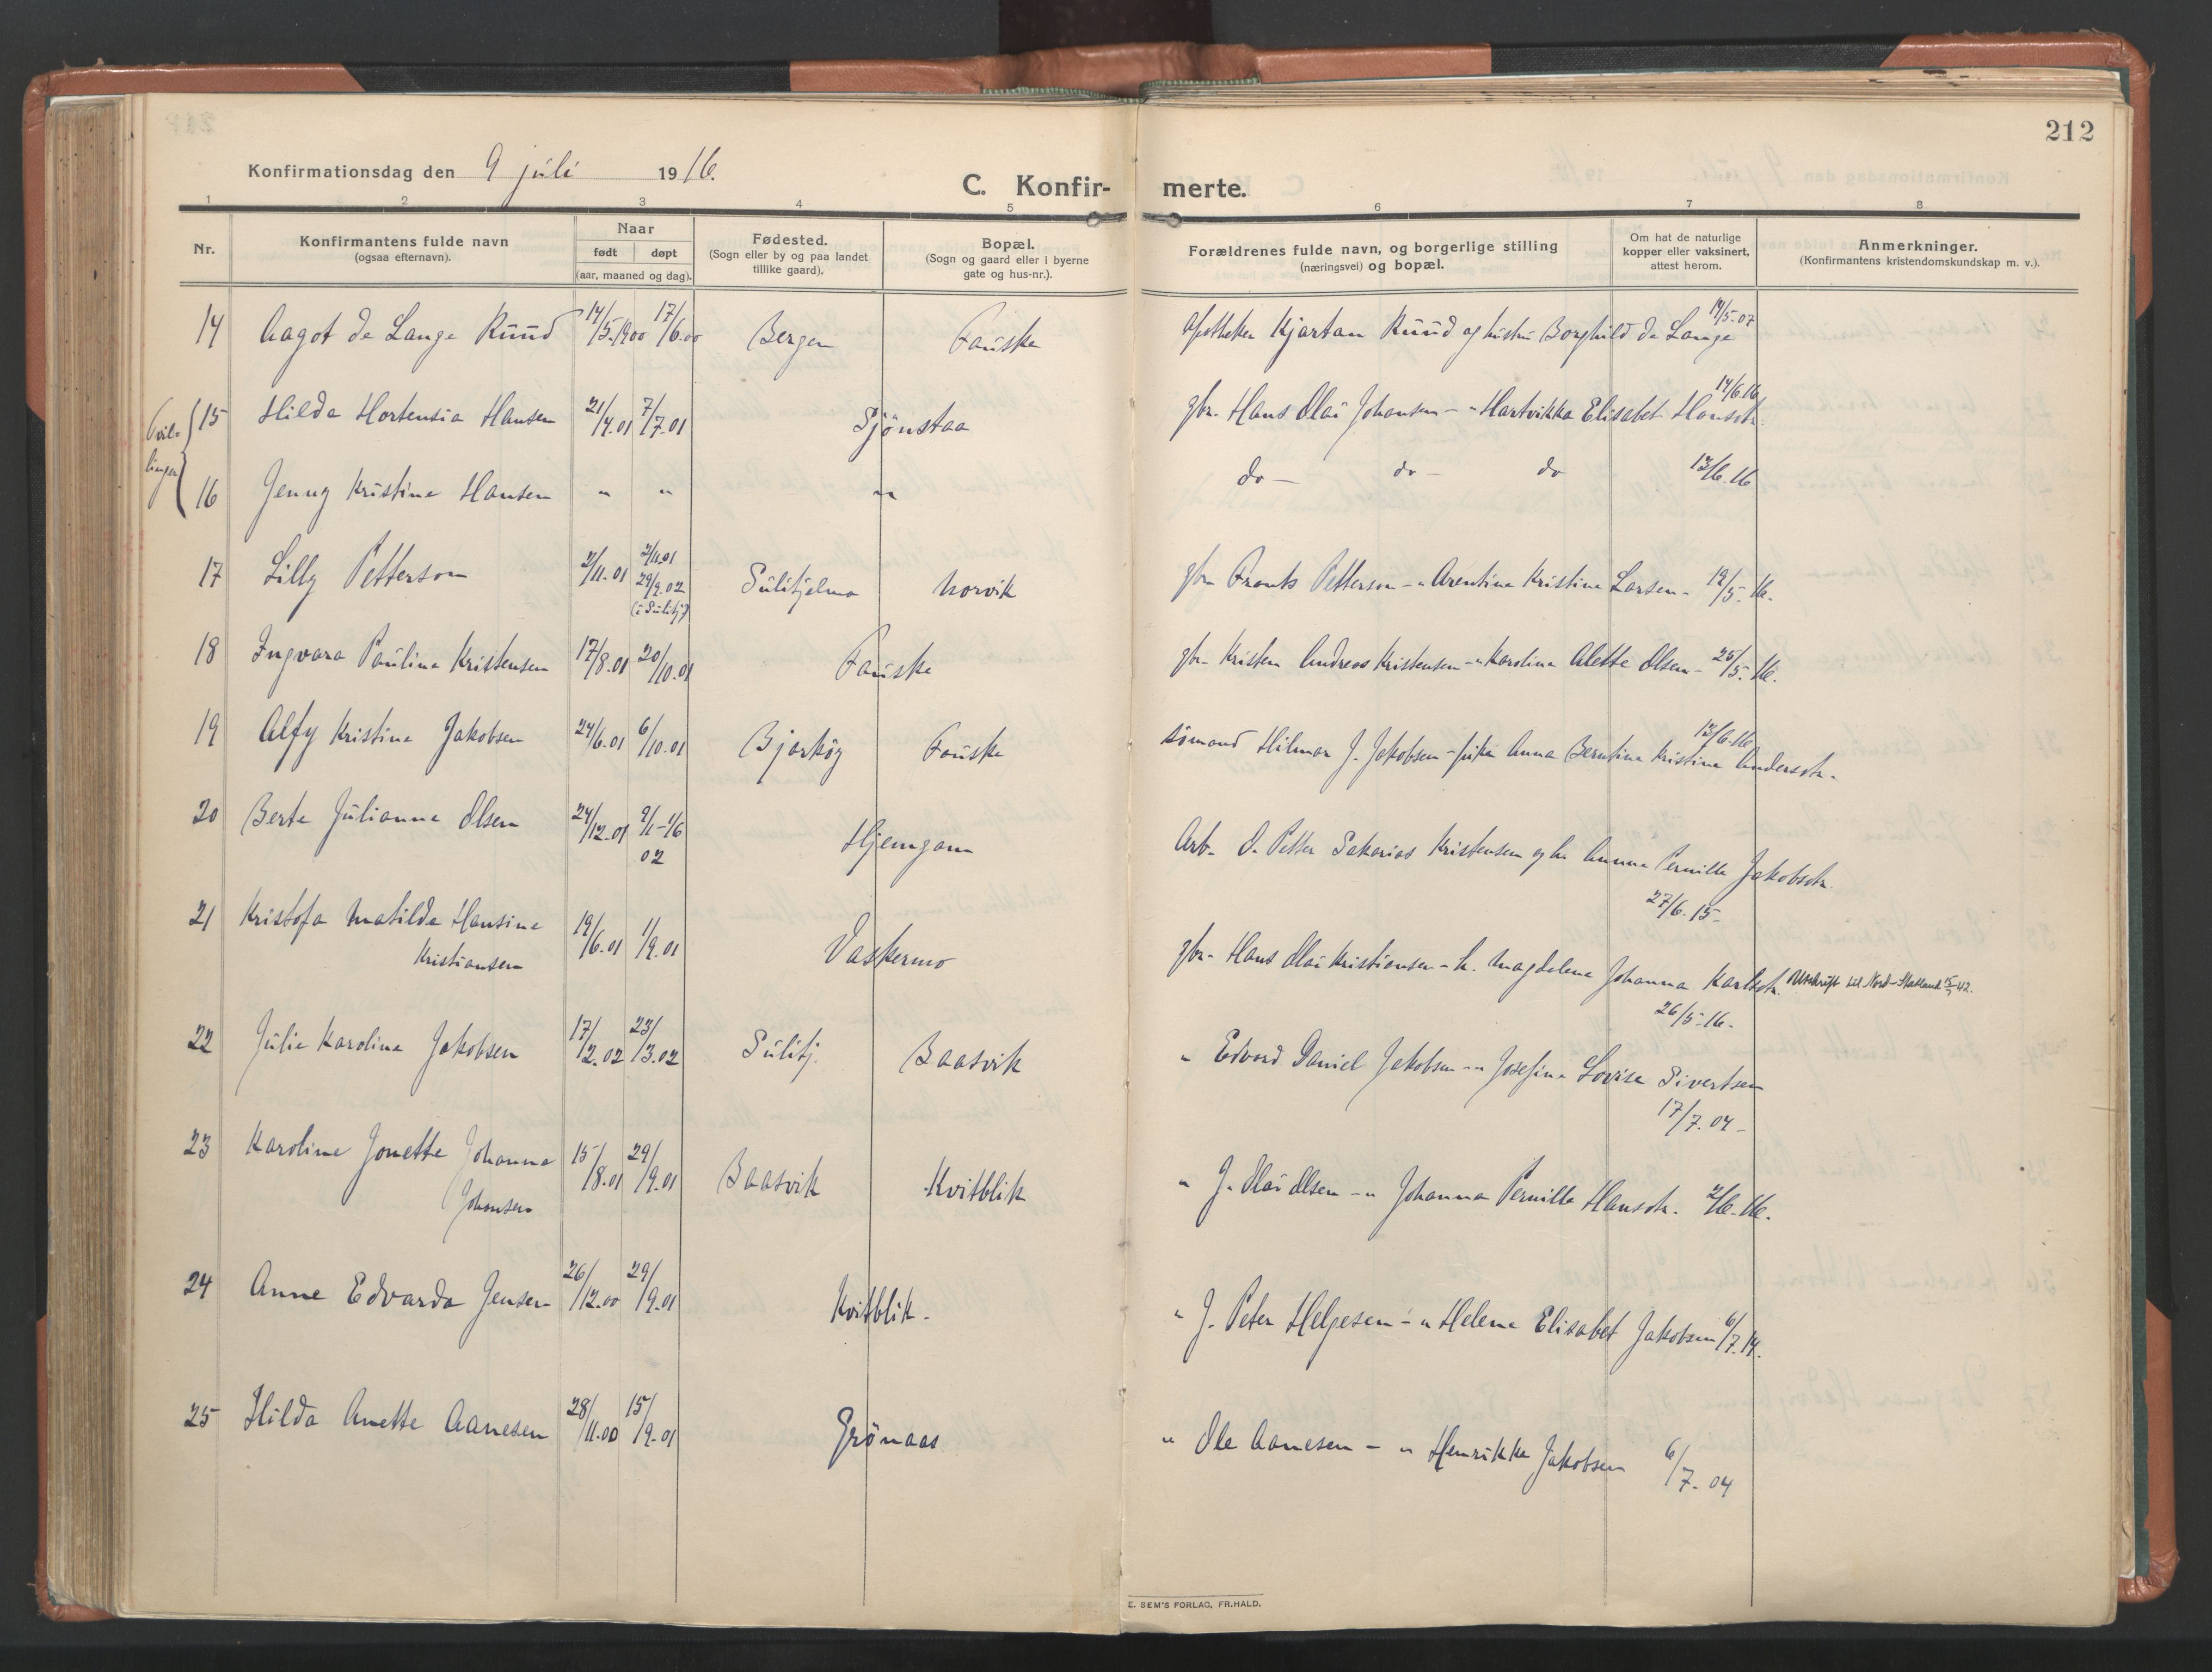 212
Konfirmationsdag den 9 juli 1916.
C. Konfir- merte.
1 2 3 4 5 6 7 8
Nr.
Konfirmantens fulde navn
(ogsaa efternavn).
Naar
født døpt
(aar, maaned og dag).
Fødested.
(Sogn eller by og paa landet
tillike gaard).
Bopæl.
(Sogn og gaard eller i byerne
gate og hus-nr.).
Forældrenes fulde navn, og borgerlige stilling
(næringsvei) og bopæl.
Om hat de naturlige
kopper eller vaksinert,
attest herom.
Anmerkninger.
(Konfirmantens kristendomskundskap m. v.).
14 Aagot de Lange Ruud 14/5.1900 17/6.00 Bergen Fauske Apotheker Kjartan Ruud og hustru Borghild de Lange 14/5-07
Tvil-
linger
15 Hilda Hortensia Hansen 21/4.01 7/7.01 Sjönstaa gbr. Hans Olai Johansen - " Hartvikka Elisabet Hansdtr. 14/6.16
16 Jenny Kristine Hansen " " " do - do - do 13/6.16
17 Lilly Petterson 2/11.01 2/11.01
29/9.02
(i Sulitj.) Sulitjelma Norvik gbr Frants Petterson - " Arentine Kristine Larsen - 19/5-16.
18 Ingvara Pauline Kristensen 17/8.01 20/10.01 Fauske gbr. Kristen Andreas Kristensen - " Karoline Alette Olsen - 25/5-16.
19 Alfy Kristine Jakobsen 24/6.01 6/10.01 Bjarköy Fauske sömand Hilmar J. Jakobsen - pike Anna Berntine Kristine Andersdtr. 13/6-16
20 Berte Julianne Olsen 24/12.01 9/1-16
02 Hjemgam Arb. O. Petter Sakarias Kristensen og h. Anna Pernille Jakobsdtr.
27/6.15-
21 Kristofa Matilde Hansine
Kristiansen 19/6.01 1/9.01 Vaskermo gbr. Hans Olai Kristiansen - h. Magdalena Johanna Karlsdtr. Utskrift til Nord-Statland 15/7 42.
26/5-16.
22 Julie Karoline Jakobsen 17/2.02 23/3.02 Sulitj. Baasvik " Edvard Daniel Jakobsen - " Josefine Lovise Sivertsen
17/7.04-
23 Karoline Jonette Johanne
Johansen 15/8.01 29/9.01 Baasvik Kvitblik " J. Olai Olsen - " Johanna Pernille Hansdtr. 2/6-16.
24 Anne Edvarda Jensen 26/12.00 29/9.01 Kvitblik. " J. Peter Helgesen - " Helene Elisabet Jakobsen 6/7.14.
25 Hilda Anette Aanesen 28/11.00 15/9.01 Grönaas " Ole Aanesen - " Henrikke Jakobsen 6/7.04
E. SEM'S FORLAG, FR.HALD.